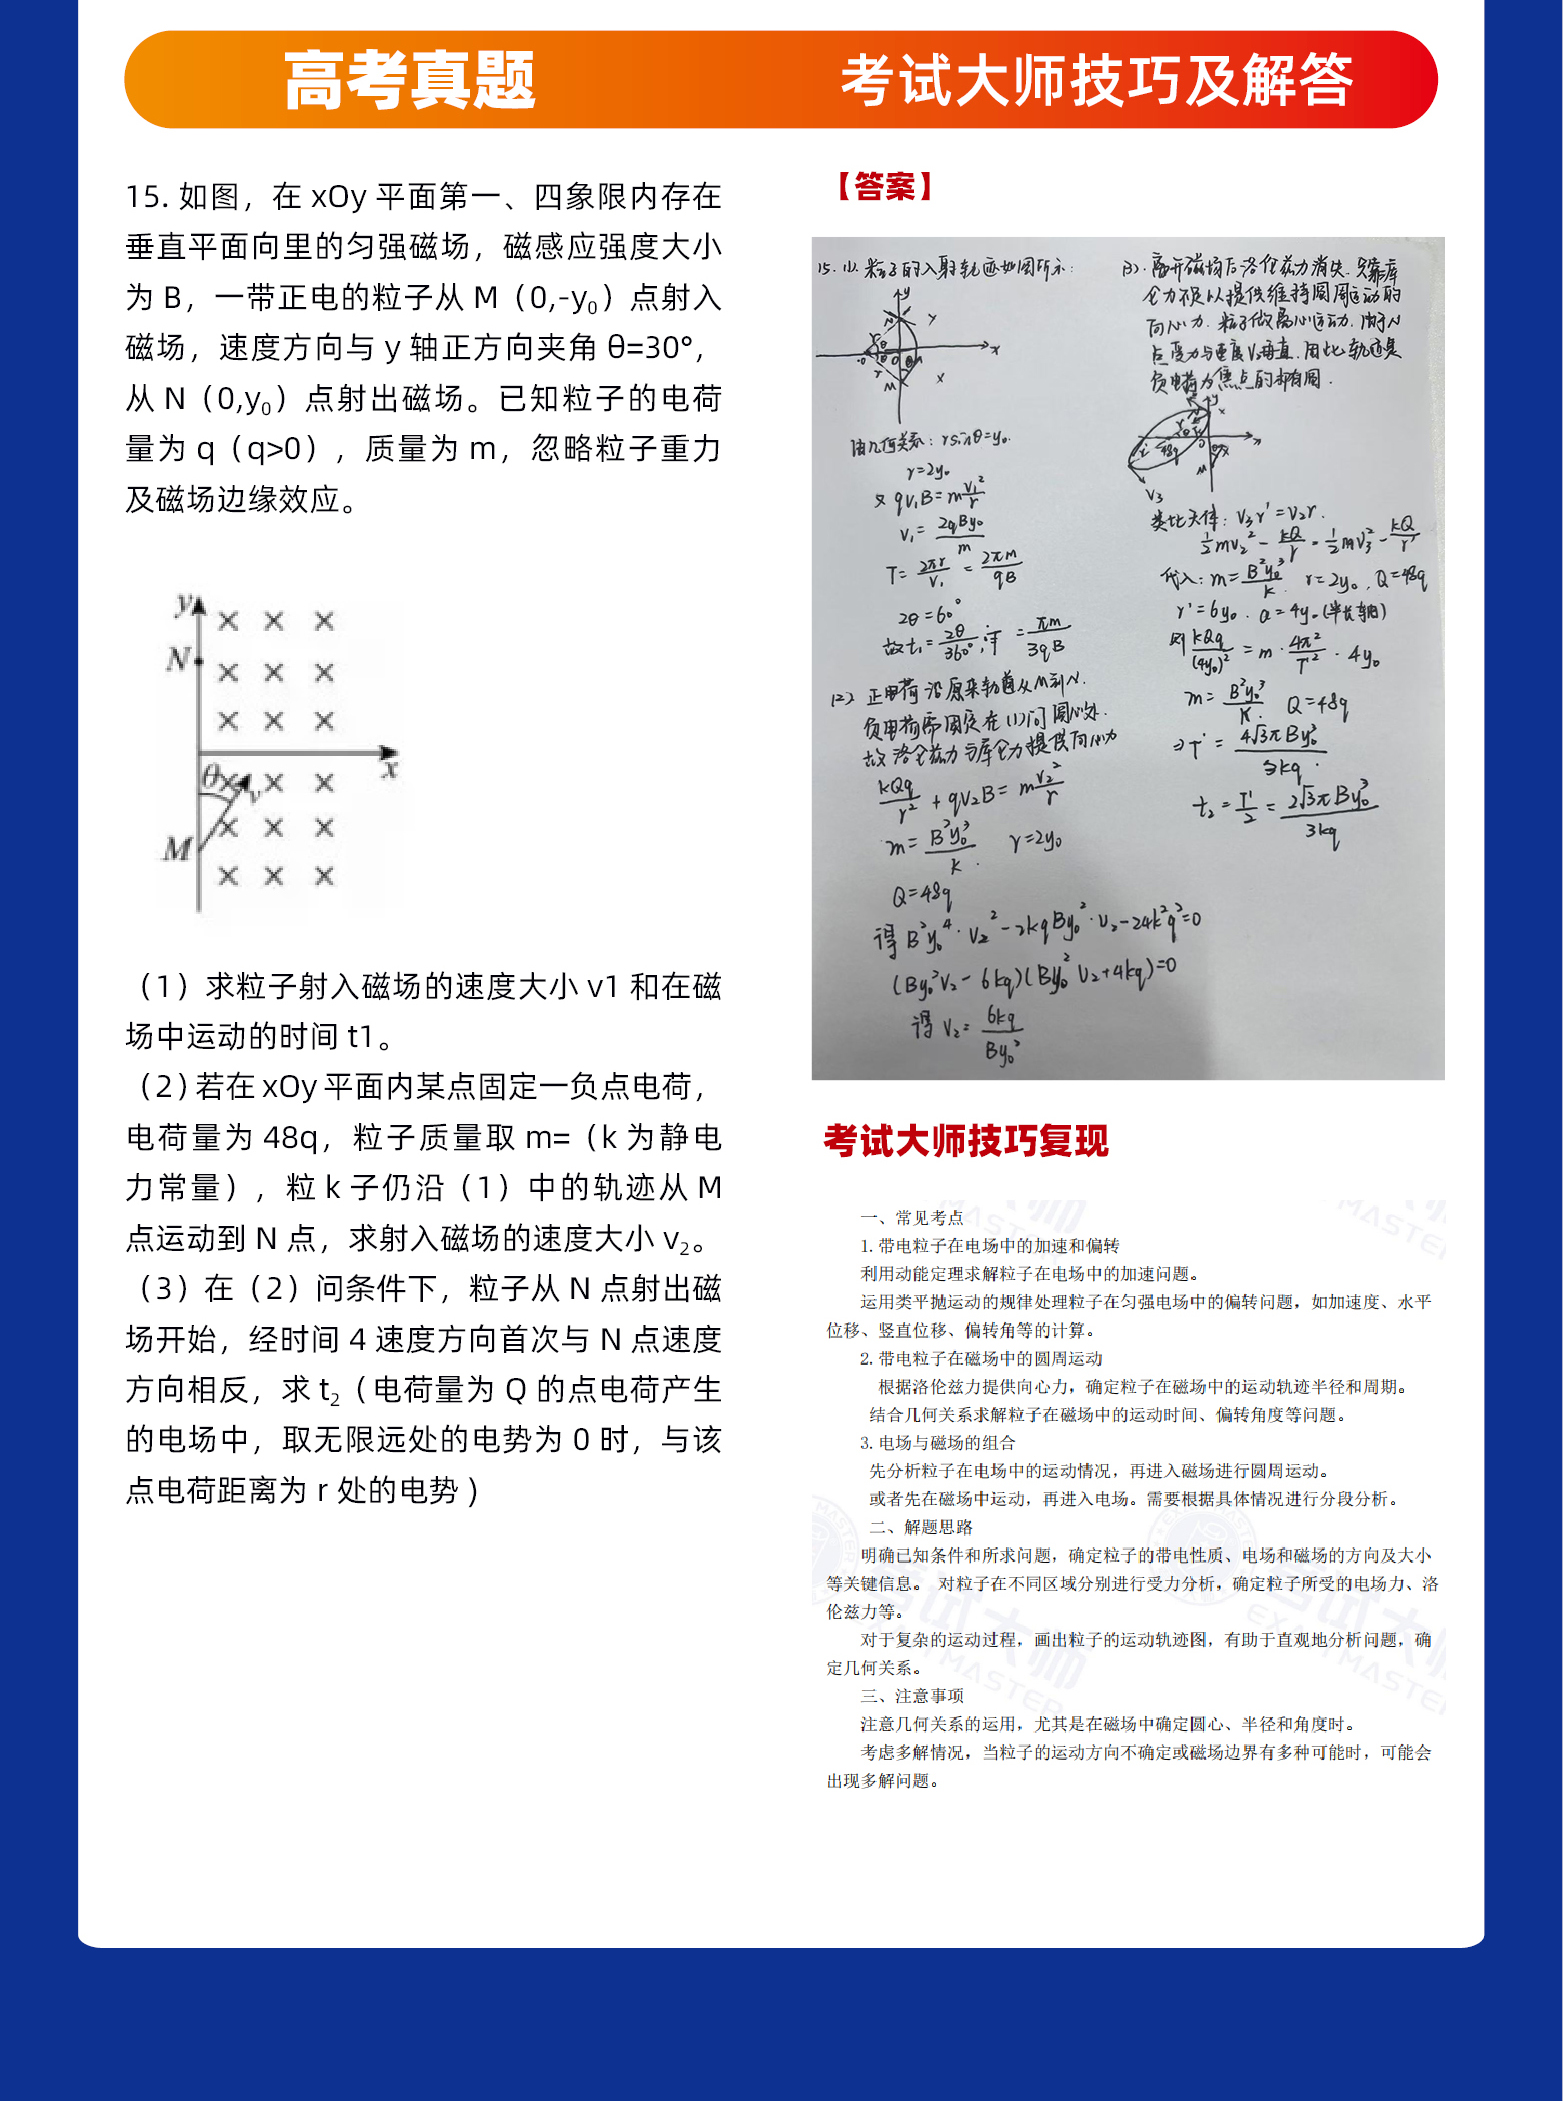 高考真题
考试大师技巧及解答
15. 如图，在 xOy 平面第一、四象限内存在
垂直平面向里的匀强磁场，磁感应强度大小
为 B，一带正电的粒子从 M（0,-y₀）点射入
磁场，速度方向与 y 轴正方向夹角 θ=30°，
从 N（0,y₀）点射出磁场。已知粒子的电荷
量为 q（q>0），质量为 m，忽略粒子重力
及磁场边缘效应。
y
N
x
θ
v
M
（1）求粒子射入磁场的速度大小 v1 和在磁
场中运动的时间 t1。
（2）若在 xOy 平面内某点固定一负点电荷，
电荷量为 48q，粒子质量取 m=（k 为静电
力常量），粒 k 子仍沿（1）中的轨迹从 M
点运动到 N 点，求射入磁场的速度大小 v₂。
（3）在（2）问条件下，粒子从 N 点射出磁
场开始，经时间 4 速度方向首次与 N 点速度
方向相反，求 t₂（电荷量为 Q 的点电荷产生
的电场中，取无限远处的电势为 0 时，与该
点电荷距离为 r 处的电势 )
【答案】
15. (1). 粒子的入射轨迹如图所示:
由几何关系: rsinθ=y₀.
r=2y₀
又 qv₁B=m v₁²/r
v₁ = 2qBy₀/m
T= 2πr/v₁ = 2πm/qB
2θ=60°
故t₁= 2θ/360° · T = πm/3qB
(2) 正电荷沿原来轨道从M到N.
负电荷需固定在(1)问圆心处.
故洛仑兹力与库仑力提供向心力
kQq/r² + qv₂B= m v₂²/r
m= B²y₀³/k . r=2y₀
Q=48q
得 B²y₀⁴·v₂²-2kqBy₀²·v₂-24k²q²=0
(By₀²v₂-6kq)(By₀²v₂+4kq)=0
得 v₂= 6kq/By₀²
(3). 离开磁场后洛伦兹力消失. 只靠库
仑力不足以提供维持圆周运动的
向心力. 粒子做离心运动. 由于N
点受力与速度V₂垂直. 因此轨迹是
负电荷为焦点的椭圆.
类比天体: v₃r'=v₂r.
½mv₂²- kQ/r = ½mv₃²- kQ/r'
代入: m= B²y₀³/k r=2y₀. Q=48q
r'=6y₀. a=4y₀(半长轴)
则 kQq/(4y₀)² = m· 4π²/T² ·4y₀
m= B²y₀³/k. Q=48q
⇒T'= 4√3πBy₀³/3kq.
t₂= T'/2 = 2√3πBy₀³/3kq
考试大师技巧复现
一、常见考点
1. 带电粒子在电场中的加速和偏转
利用动能定理求解粒子在电场中的加速问题。
运用类平抛运动的规律处理粒子在匀强电场中的偏转问题，如加速度、水平
位移、竖直位移、偏转角等的计算。
2. 带电粒子在磁场中的圆周运动
根据洛伦兹力提供向心力，确定粒子在磁场中的运动轨迹半径和周期。
结合几何关系求解粒子在磁场中的运动时间、偏转角度等问题。
3. 电场与磁场的组合
先分析粒子在电场中的运动情况，再进入磁场进行圆周运动。
或者先在磁场中运动，再进入电场。需要根据具体情况进行分段分析。
二、解题思路
明确已知条件和所求问题，确定粒子的带电性质、电场和磁场的方向及大小
等关键信息。 对粒子在不同区域分别进行受力分析，确定粒子所受的电场力、洛
伦兹力等。
对于复杂的运动过程，画出粒子的运动轨迹图，有助于直观地分析问题，确
定几何关系。
三、注意事项
注意几何关系的运用，尤其是在磁场中确定圆心、半径和角度时。
考虑多解情况，当粒子的运动方向不确定或磁场边界有多种可能时，可能会
出现多解问题。